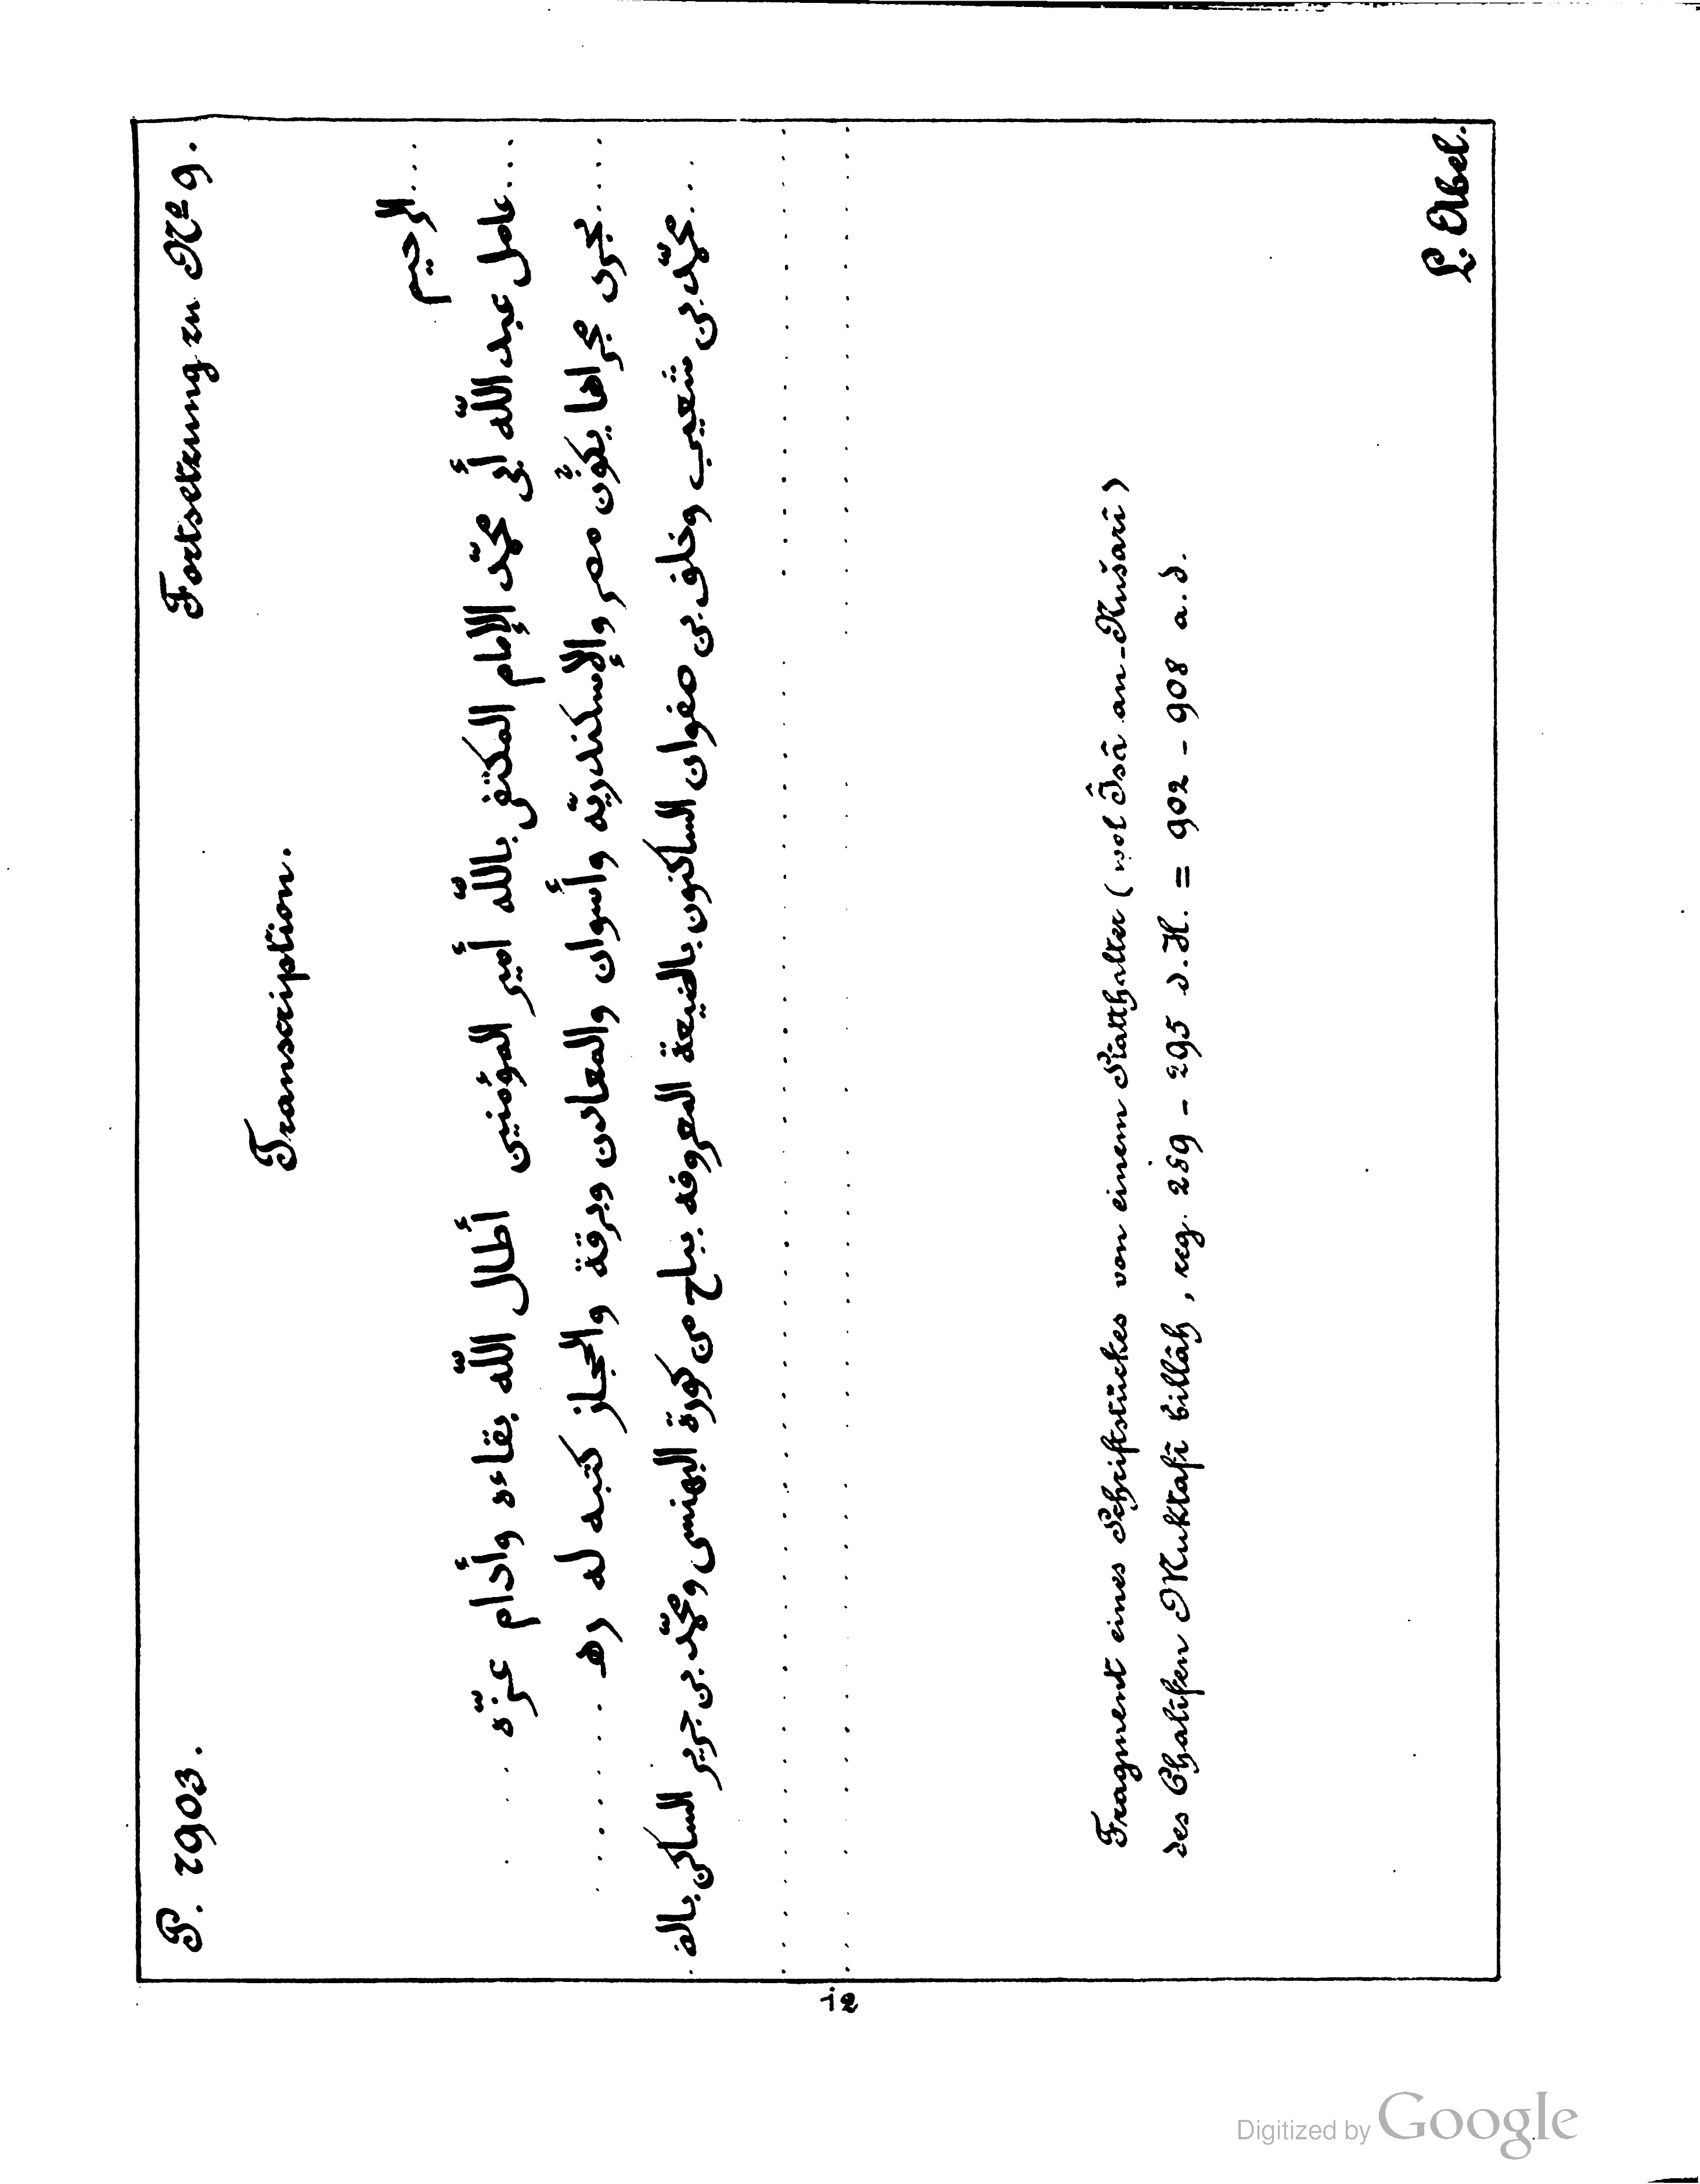 P. 7903. Fortsetzung zu No 9.
Transcription.
...الرحيم
...عامل عبد اللّه أبى محمّد الإمام المكتفى باللّه أمير المؤمنين أطال اللّه بقاءه وأدام عزّه . . .
....مجرى مجراها بكوَّن مصر والإسكندريّه وأسوان والمعادن وبرقة والحجاز كتبه له ره . . . . . .
...محمّد بن شعيب وخلف بن صفوان الساكنون بالضيعة المعروفه ببلح من كورة البهنسى ومحمّد بن جرير الساكن بالة.
Fragment eines Schriftstückes von einem Statthalter (wol Îsâ an-Nušarî)
des Chalifen Muktafî billâh, reg. 289 - 295 d.H. = 902 - 908 a.d.
L. Abel.
12
Digitized by Google